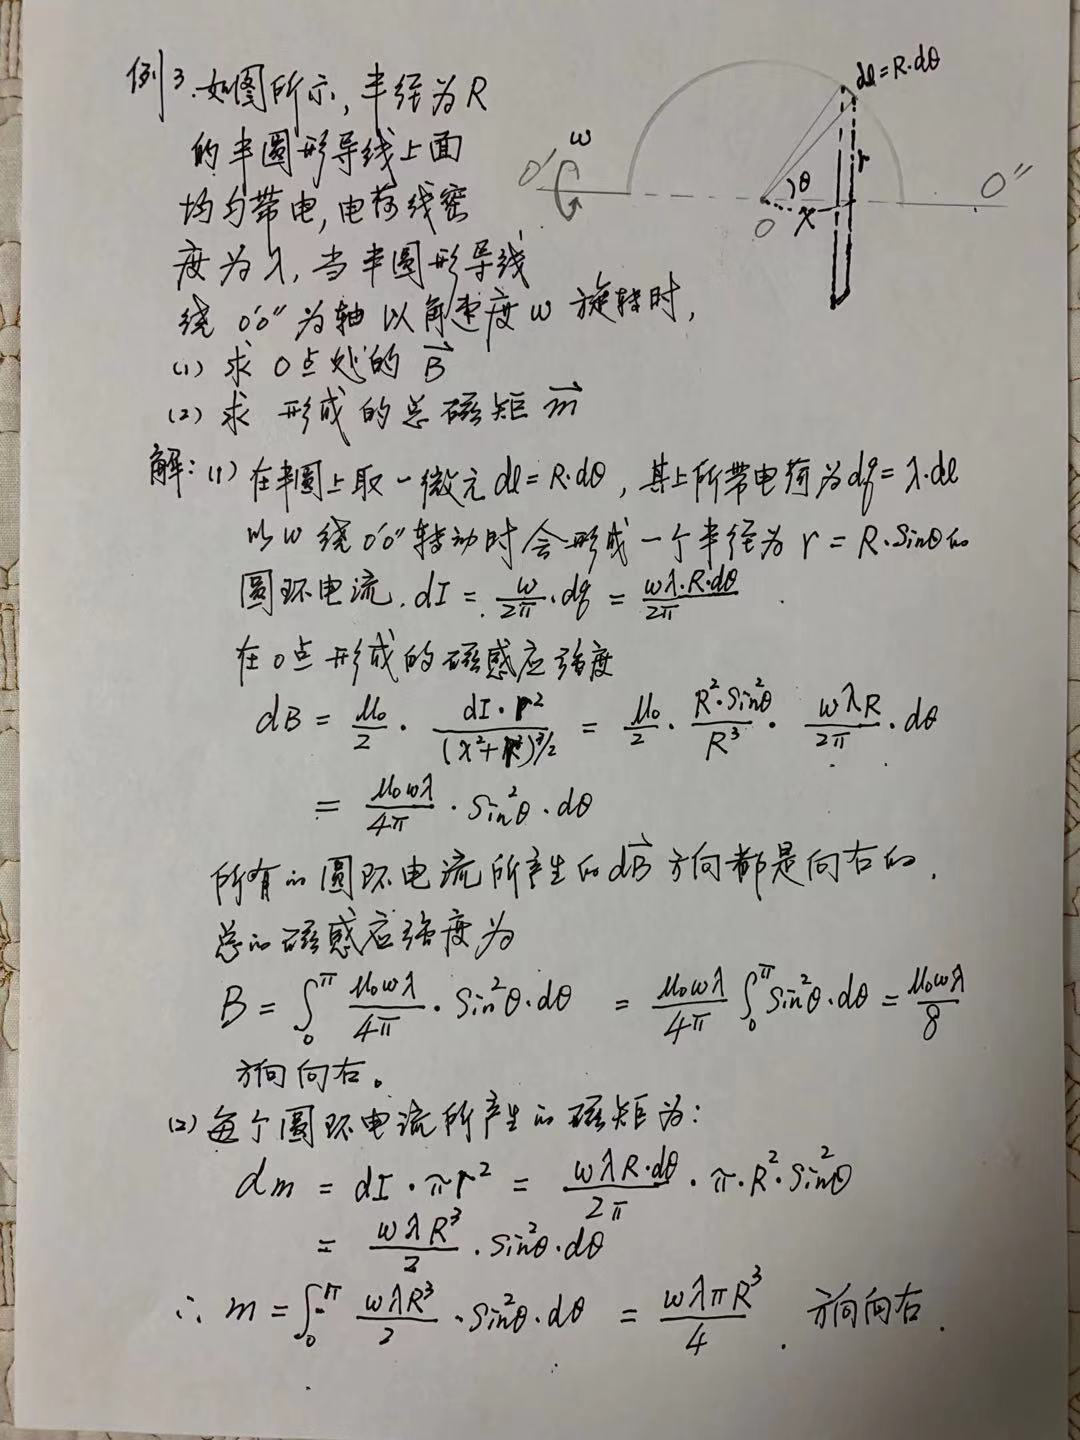 例3.如图所示,半径为R
dl=R·dθ
的半圆形导线上面
ω
r
O'
θ
O''
均匀带电,电荷线密
O
x
度为λ,当半圆形导线
绕O'O''为轴以角速度ω旋转时,
(1) 求O点处的B⃗
(2) 求形成的总磁矩m⃗
解:(1) 在半圆上取一微元dl=R·dθ,其上所带电荷为dq=λ·dl
以ω绕O'O''转动时会形成一个半径为r=R·Sinθ的
圆环电流.dI=ω/2π·dq=ωλ·R·dθ/2π.
在O点形成的磁感应强度
dB=μ₀/2·dI·r²/(x²+r²)^3/2=μ₀/2·R²·Sin²θ/R³·ωλR/2π·dθ
=μ₀ωλ/4π·Sin²θ·dθ
所有的圆环电流所产生的dB⃗方向都是向右的.
总的磁感应强度为
B=∫₀^π μ₀ωλ/4π·Sin²θ·dθ=μ₀ωλ/4π∫₀^π Sin²θ·dθ=μ₀ωλ/8
方向向右。
(2) 每个圆环电流所产生的磁矩为:
dm=dI·πr²=ωλR·dθ/2π·π·R²·Sin²θ
=ωλR³/2·Sin²θ·dθ
∴ m=∫₀^π ωλR³/2·Sin²θ·dθ=ωλπR³/4.方向向右.